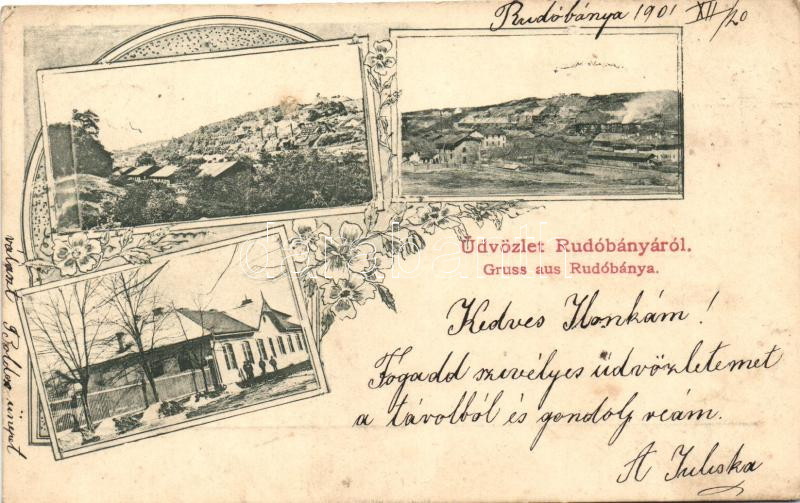 Rudóbánya 1901 XII/20
Üdvözlet Rudóbányáról.
Gruss aus Rudóbánya.
Kedves Ilonkám!
Fogadd szivélyes üdvözletemet
a távolból és gondolj reám.
A Juliska
valamint Boldog ünnepet